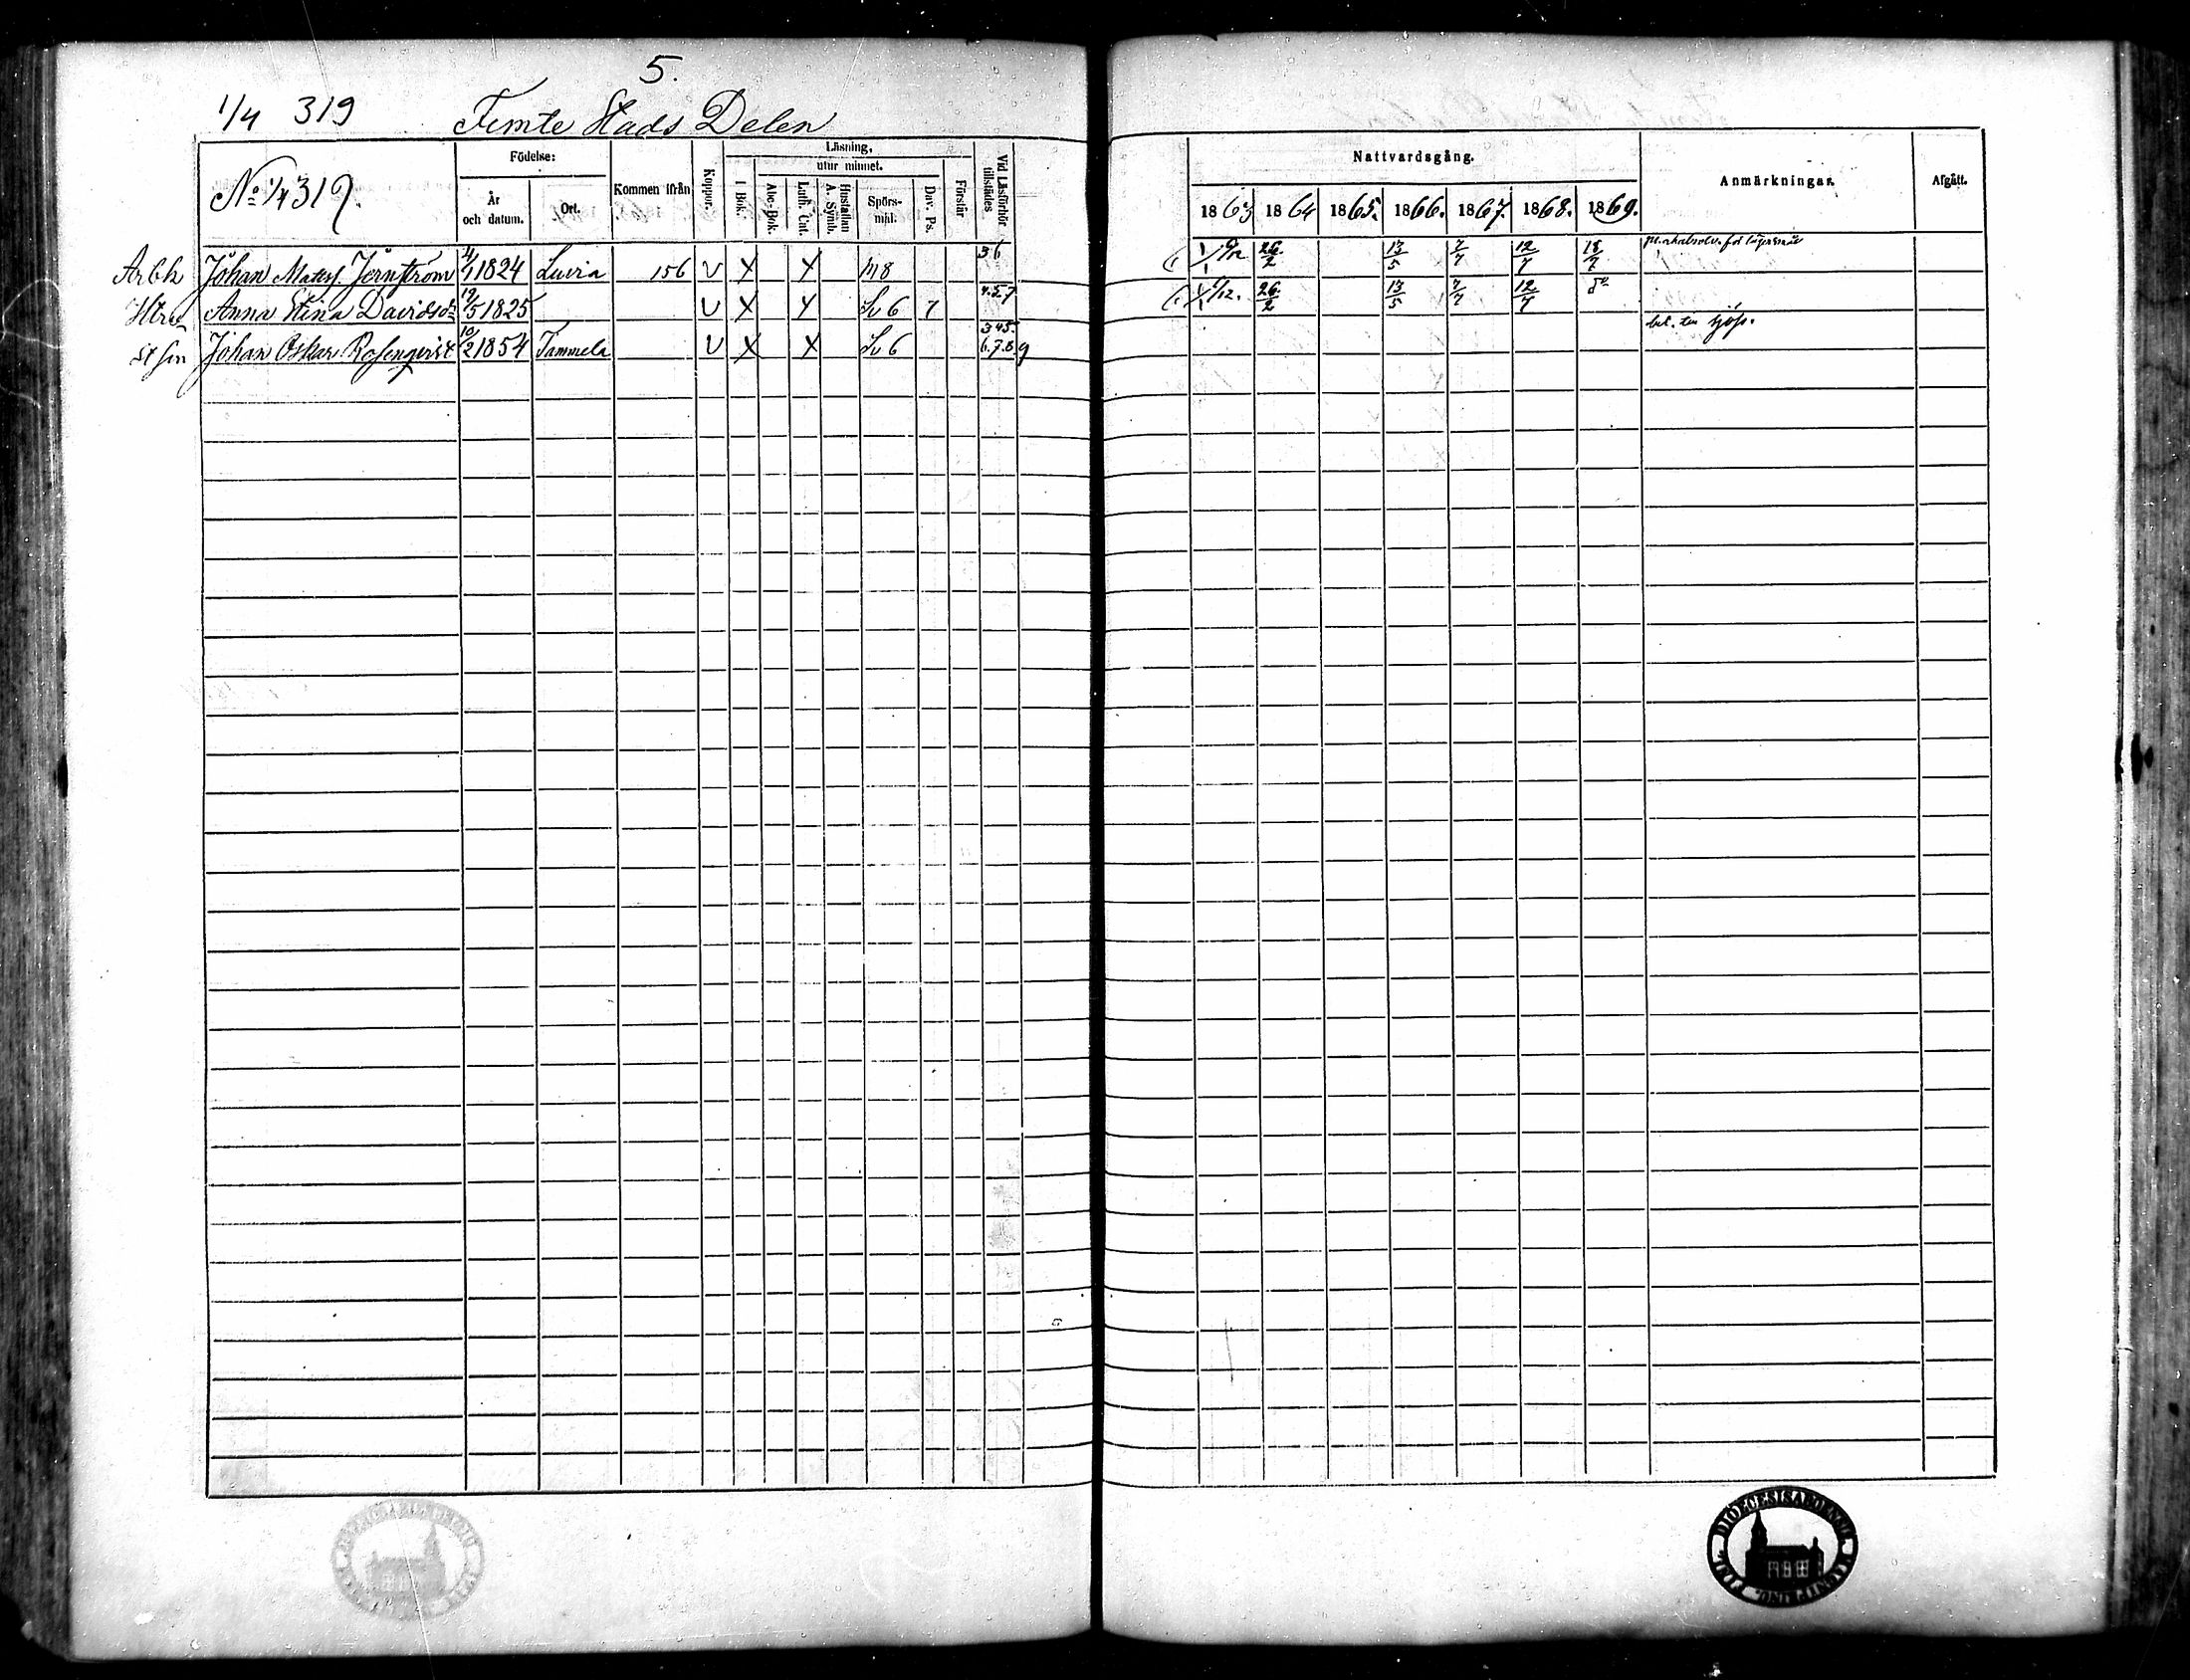 5.
1/4 319 Femte Stads Delen
No 1/4 319.
Födelse:
År och datum.
Ort.
Kommen ifrån
Koppor.
Läsning,
I Bok.
utur minnet.
Abc-Bok.
Luth. Cat.
Hustaflan A. Symb.
Spörs-mål.
Dav. Ps.
Förstår
Vid Läsförhör tillstädes
Nattvardsgång.
1863 1864 1865. 1866. 1867. 1868. 1869.
Anmärkningar.
Afgått.
Arbk Johan Matss. Jernström 4/1 1824 Luvia 156 v X X m8 36 1/1 6/12 26/2 13/5 7/7 12/7 18/7
Htru Anna Stina Davidsdr 12/5 1825 v X X Sv 6 7 4.5.7 1/1 6/12. 26/2 13/5 7/7 12/7 do
St son Johan Oskar Rosenqvist 10/2 1854 Tammela v X X Sv 6 345. 6.7.8.9 bet. till sjöss.
DIOECESIS ABOENSIS